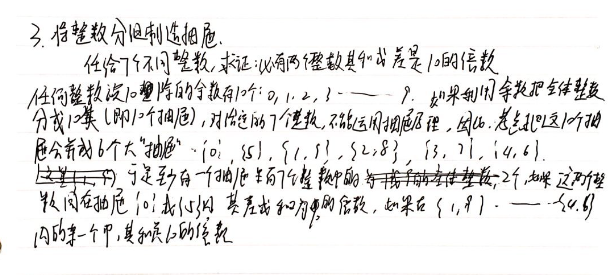 3. 将整数分组制造抽屉.
任给7个不同整数,求证:必有两个整数其和或差是10的倍数
任何整数被10整除的余数有10个:0,1,2,3······9. 如果利用余数把全体整数
分成10类(即10个抽屉),对给定的7个整数,不能运用抽屉原理,因此.考虑把这10个抽
屉合并成6个大"抽屉"·{0},{5},{1,9},{2,8},{3,7},{4,6}.
于是至少有一个抽屉里有7个整数中的2个,如果这两个整
数同在抽屉{0}或{5}内 其差或和为10的倍数,如果在{1,9}······{4,6}
内的某一个中,其和是10的倍数